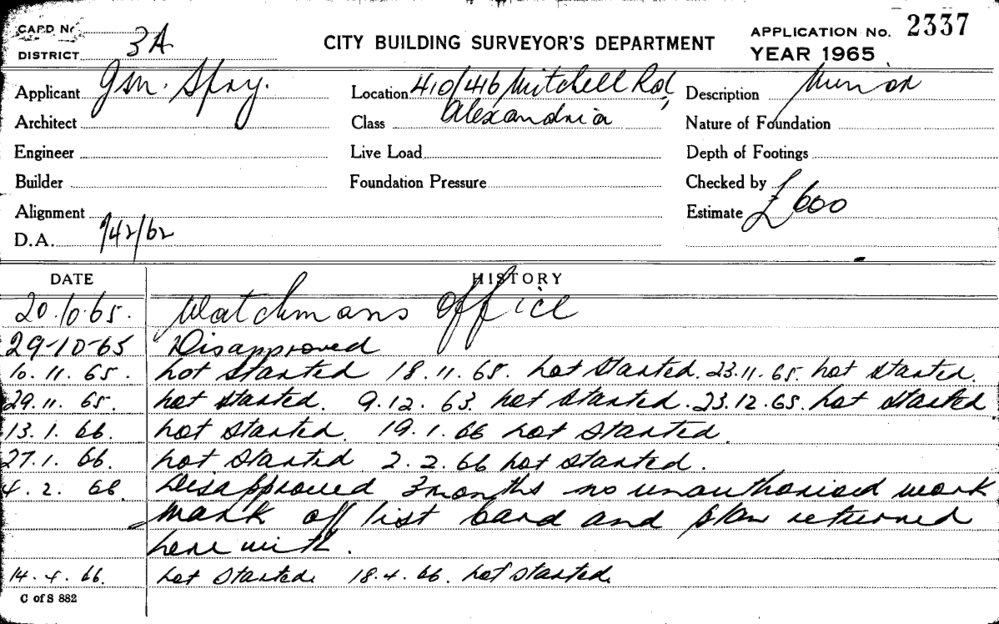 CARD No.
DISTRICT 3A
CITY BUILDING SURVEYOR'S DEPARTMENT
APPLICATION No. 2337
YEAR 1965
Applicant Jsn. Spry.
Location 410/416 Mitchell Rd,
Alexandria
Description Minor
Architect
Class
Nature of Foundation
Engineer
Live Load
Depth of Footings
Builder
Foundation Pressure
Checked by
Alignment
Estimate £600
D.A. 742/62
DATE HISTORY
20.10.65. Watchmans Office
29-10-65 Disapproved
10.11.65. not started 18.11.65. not started. 23.11.65. not started.
29.11.65. not started. 9.12.63. not started. 23.12.65. not started
13.1.66. not started. 19.1.66 not started.
27.1.66. not started 2.2.66 not started.
4.2.66. Disapproved 3 months no unauthorised work
mark off list card and plan returned
here with.
14.4.66. not started. 18.4.66. not started.
C of S 882